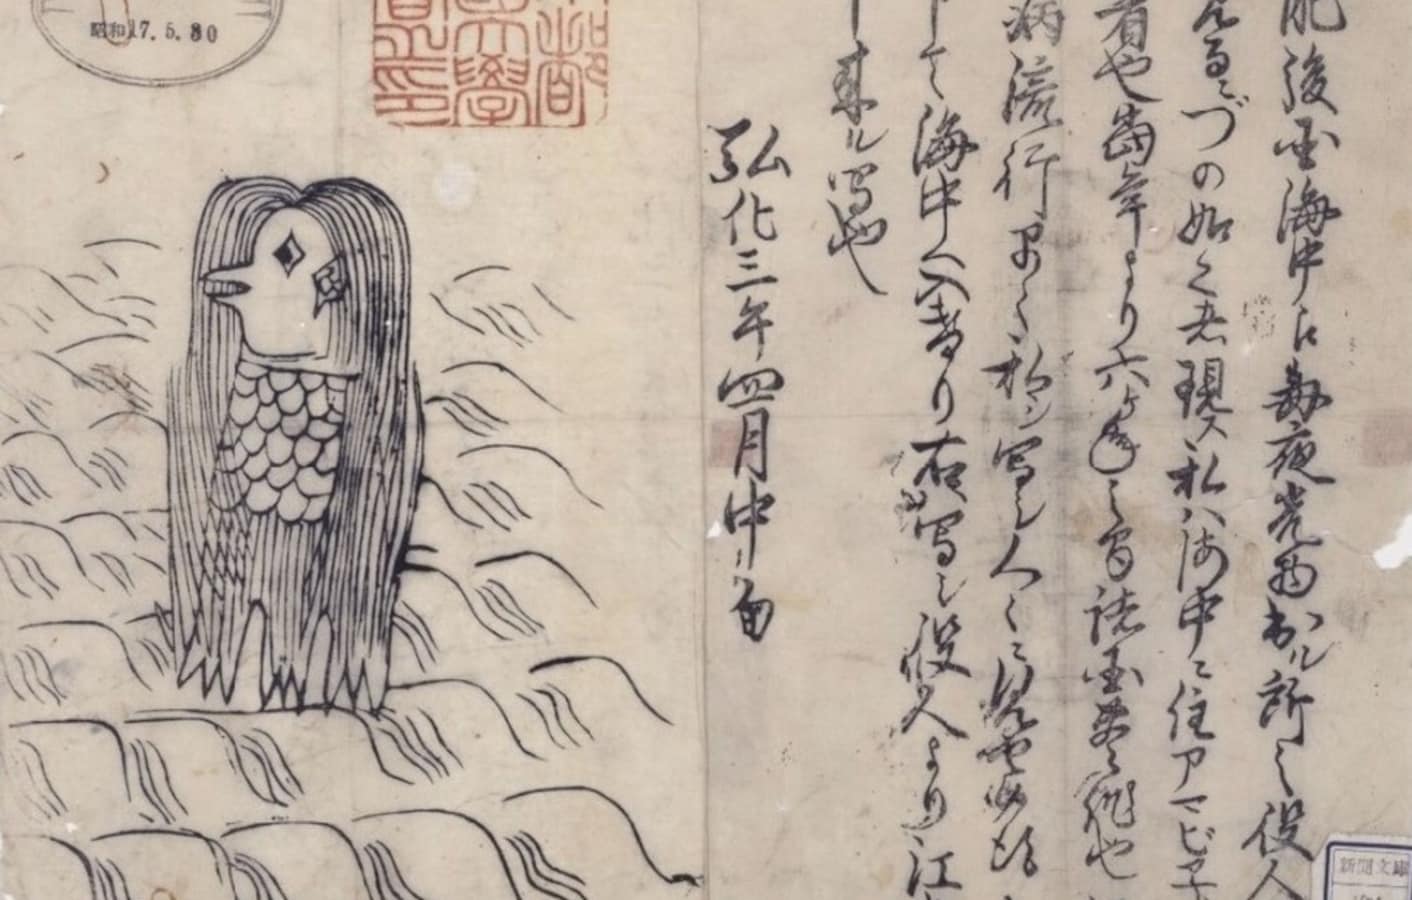 肥後国海中江毎夜光物出ル所之役人
見るニづの如く者現ス私ハ海中ニ住アマビヱ
者也當年より六ヶ年之間諸国豊作也
病流行早々私シ写シ人々ニ見せ候得
申て海中へ入けり右写シ役人より江
申来ル写也
弘化三年四月中旬
昭和17.5.30
新聞文庫